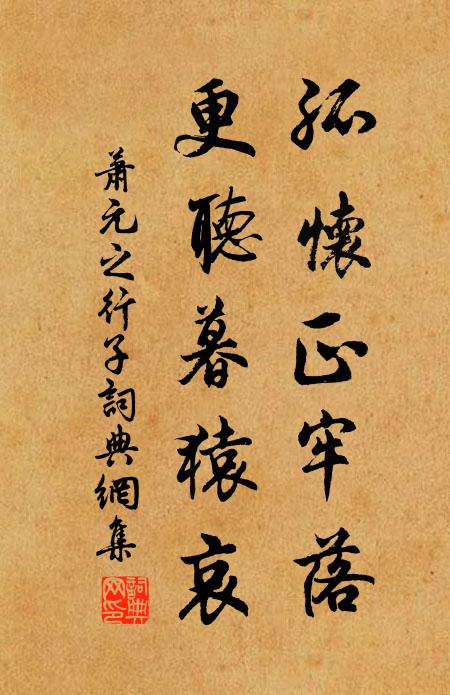 孤懷正牢落
更聽暮猿哀
蕭元之行子詞典網集
詞典網印